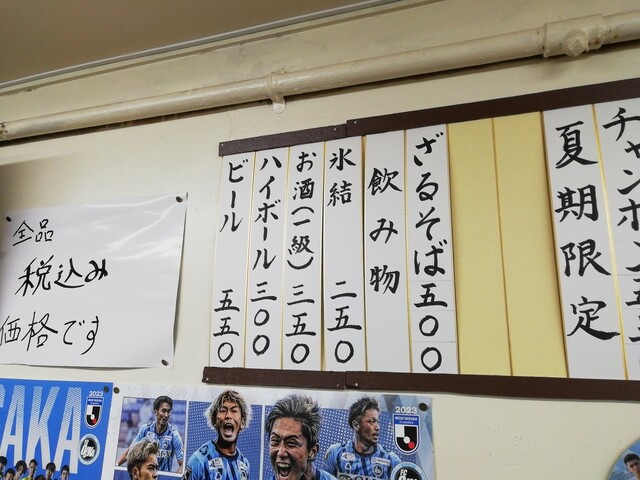 チャンポン 五五
夏期限定
ざるそば 五〇〇
飲み物
氷結 二五〇
お酒(一級) 三五〇
ハイボール 三〇〇
ビール 五五〇
全品
税込み
価格です
SAKA
2023
2023
FC